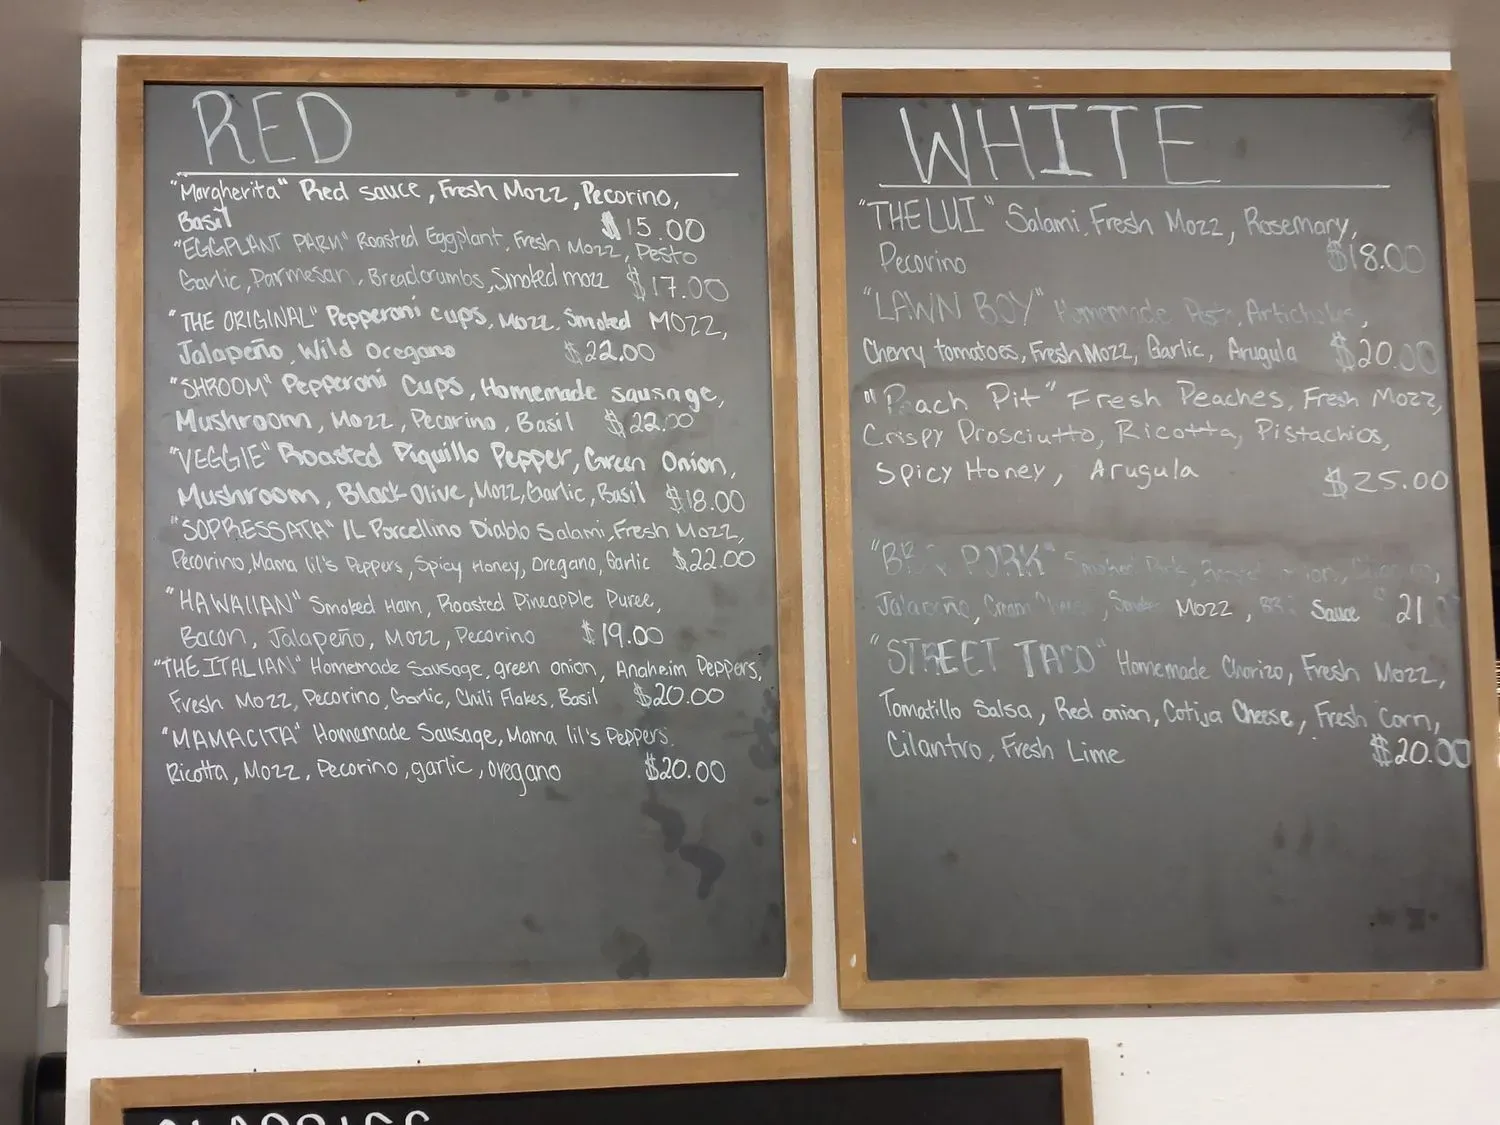 RED
"Margherita" Red sauce, Fresh Mozz, Pecorino,
Basil $15.00
"EGGPLANT PARM" Roasted Eggplant, Fresh Mozz, Pesto
Garlic, Parmesan, Breadcrumbs, Smoked mozz $17.00
"THE ORIGINAL" Pepperoni cups, Mozz, Smoked Mozz,
Jalapeño, Wild Oregano $22.00
"SHROOM" Pepperoni Cups, Homemade sausage,
Mushroom, Mozz, Pecorino, Basil $22.00
"VEGGIE" Roasted Piquillo Pepper, Green Onion,
Mushroom, Black Olive, Mozz, Garlic, Basil $18.00
"SOPRESSATA" IL Porcellino Diablo Salami, Fresh Mozz,
Pecorino, Mama lil's Peppers, Spicy Honey, Oregano, Garlic $22.00
"HAWAIIAN" Smoked Ham, Roasted Pineapple Puree,
Bacon, Jalapeño, Mozz, Pecorino $19.00
"THE ITALIAN" Homemade Sausage, green onion, Anaheim Peppers,
Fresh Mozz, Pecorino, Garlic, Chili Flakes, Basil $20.00
"MAMACITA" Homemade Sausage, Mama lil's Peppers,
Ricotta, Mozz, Pecorino, garlic, oregano $20.00
WHITE
"THE LUI" Salami, Fresh Mozz, Rosemary,
Pecorino $18.00
"LAWN BOY" Homemade Pesto, Artichokes,
Cherry tomatoes, Fresh Mozz, Garlic, Arugula $20.00
"Peach Pit" Fresh Peaches, Fresh Mozz,
Crispy Prosciutto, Ricotta, Pistachios,
Spicy Honey, Arugula $25.00
PORK" Smoked Pork,
Jalapeño, Cream Cheese, Smoked Mozz, Sauce 21
"STREET TACO" Homemade Chorizo, Fresh Mozz,
Tomatillo Salsa, Red onion, Cotija Cheese, Fresh Corn,
Cilantro, Fresh Lime $20.00